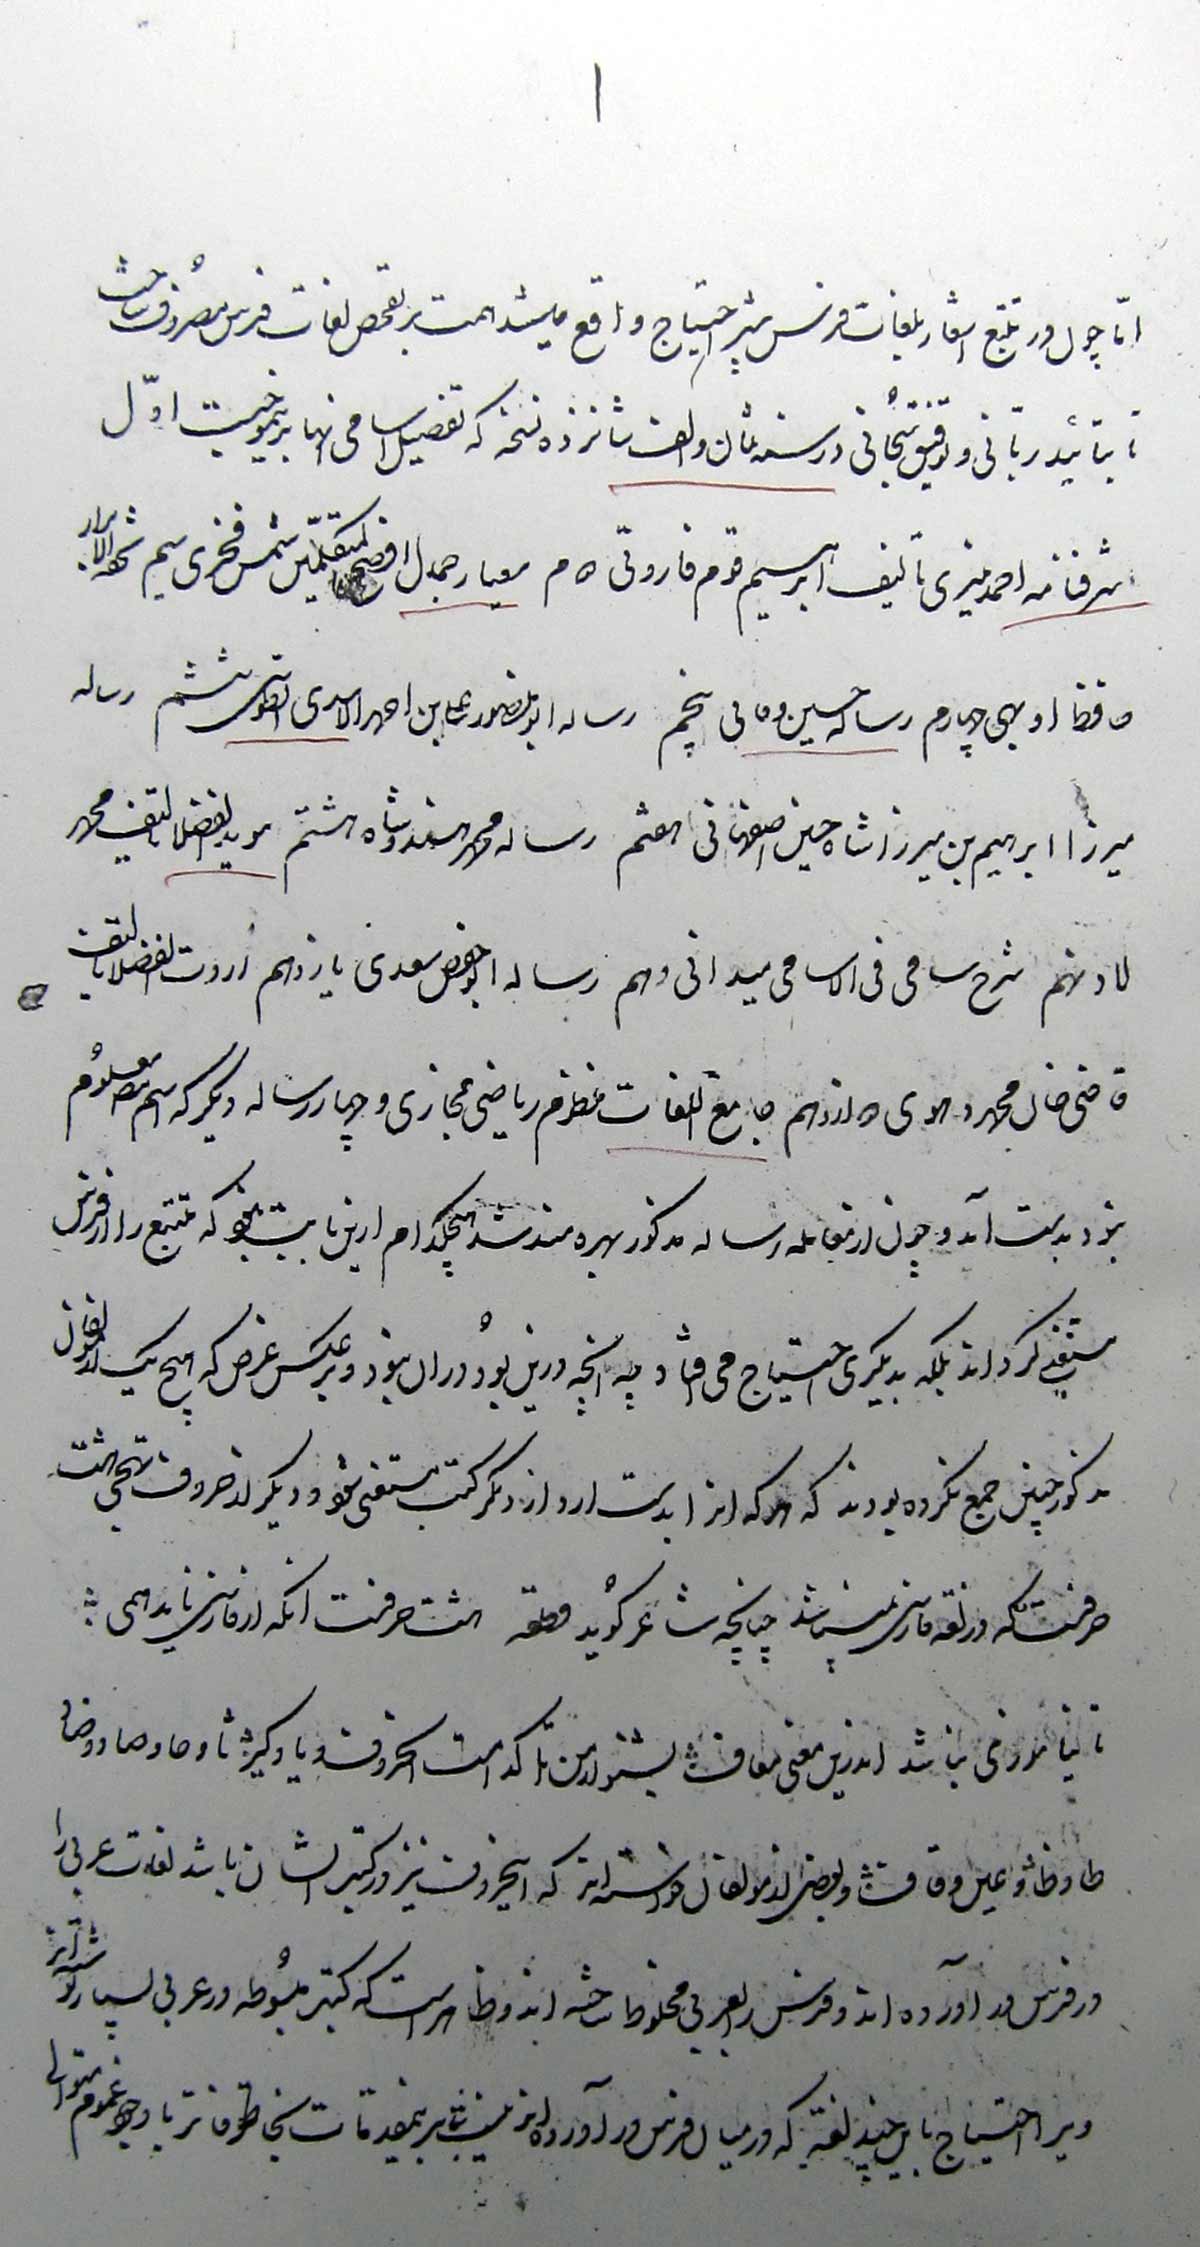 ۱
اما چون در تتبع اشعار بلغات فرس بیشتر احتیاج واقع میشد همت بر تفحص لغات فرس مصروف ساخت
تا بتائید ربانی و توفیق سبحانی در سنه ثمان و الف شانزده نسخه که تفصیل اسامی انها برینموجبست اول
شرفنامه احمد منیری تالیف ابرهیم قوم فاروقی دوم معیار جمالی افصح المتکلمین شمس فخری سیم تحفة الاحباب
حافظ اوبهی چهارم رساله حسین وفائی پنجم رساله ابو منصور علی بن احمد الاسدی الطوسی ششم رساله
میرزا ابرهیم بن میرزا شاه حسین اصفهانی هفتم رساله محمد هندوشاه هشتم موید الفضلا تالیف محمد
لاد نهم شرح سامی فی الاسامی میدانی دهم رساله ابو حفص سغدی یازدهم ادات الفضلا تالیف
قاضی خان محمد دهلوی دوازدهم جامع اللغات منظوم نیازی حجازی و چهار رساله دیگر که اسم معلوم
نبود بدست آمد و چون از مقابله رساله مذکور بهره مند شد هیچکدام ازین نبود که متتبع را از فرس
مستغنی گرداند بلکه بدیگری احتیاج می افتاد چه انچه درین بود دران نبود و برعکس غرض که هیچ یک از مولفان
مذکور چنین جمع نکرده بودند که هر که انرا بدست ارد از دیگر کتب مستغنی شود و دیگر از حروف تهجی هشت
حرفست که در لغة فارسی نمیباشد چنانچه شاعر گوید قطعه هشت حرفست انکه از فارسی ناید همی
تا نیاموزی نباشد اندرین معنی معاف بشنو از من تا کدامست انحروف و یاد گیر ثا و حا و صاد و ضاد
طا و ظا و عین و قاف و بعضی از مولفان خواسته اند که اینحروف نیز در کتب ایشان باشد لغات عربی را
در فرس در آورده اند و فرس را بعربی مخلوط ساخته اند و ظاهر است که کتب مبسوطه در عربی بسیار
و برا احتیاج باین چند لغة که در میان فرس در آورده اند نیست بنابر بنمقدمات بخاطر فاتر با وجود غموم متوالی